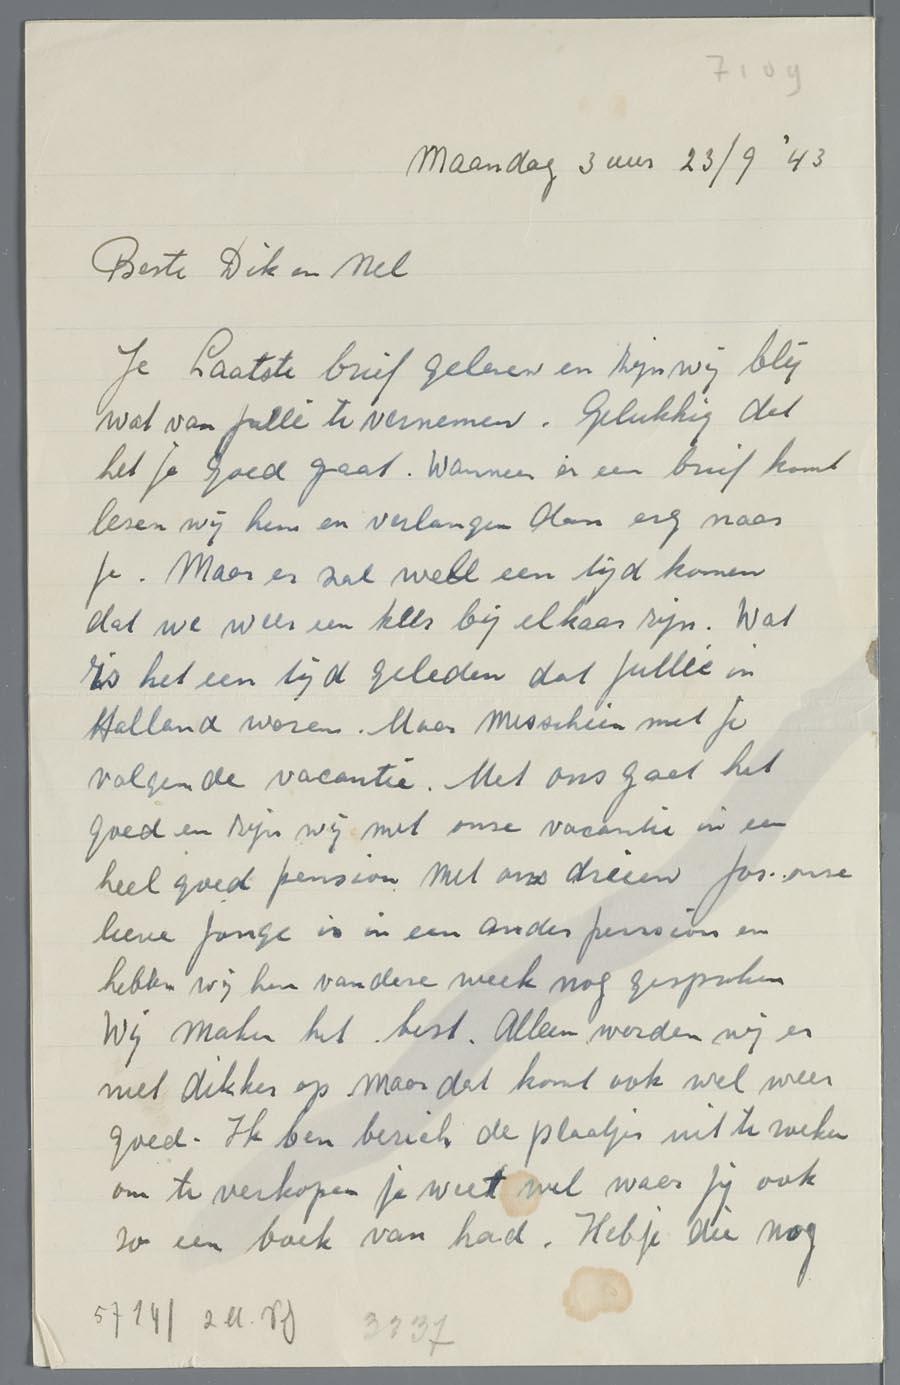 7109
Maandag 3 uur 23/9 '43
Beste Dik en Nel
Je Laatste brief gelesen en zijn wij blij
wat van jullie te vernemen. Gelukkig dat
het je goed gaat. Wanneer er een brief komt
lesen wij hem en verlangen dan erg naar
je. Maar er zal well een tijd komen
dat we weer een keer bij elkaar zijn. Wat
is het een tijd geleden dat jullie in
Holland waren. Maar misschien met je
volgende vacantie. Met ons gaat het
goed en zijn wij met onse vacantie in een
heel goed pension met ons drieen Jos. onse
lieve jonge is in een ander pension en
hebben wij hem van dese week nog gesproken
Wij maken het best. Alleen worden wij er
niet dikker op maar dat komt ook wel weer
goed. Ik ben bezich de plaatjes uit te weken
om te verkopen je weet wel waar jij ook
zo een boek van had. Heb je die nog
5714/ 2
3337